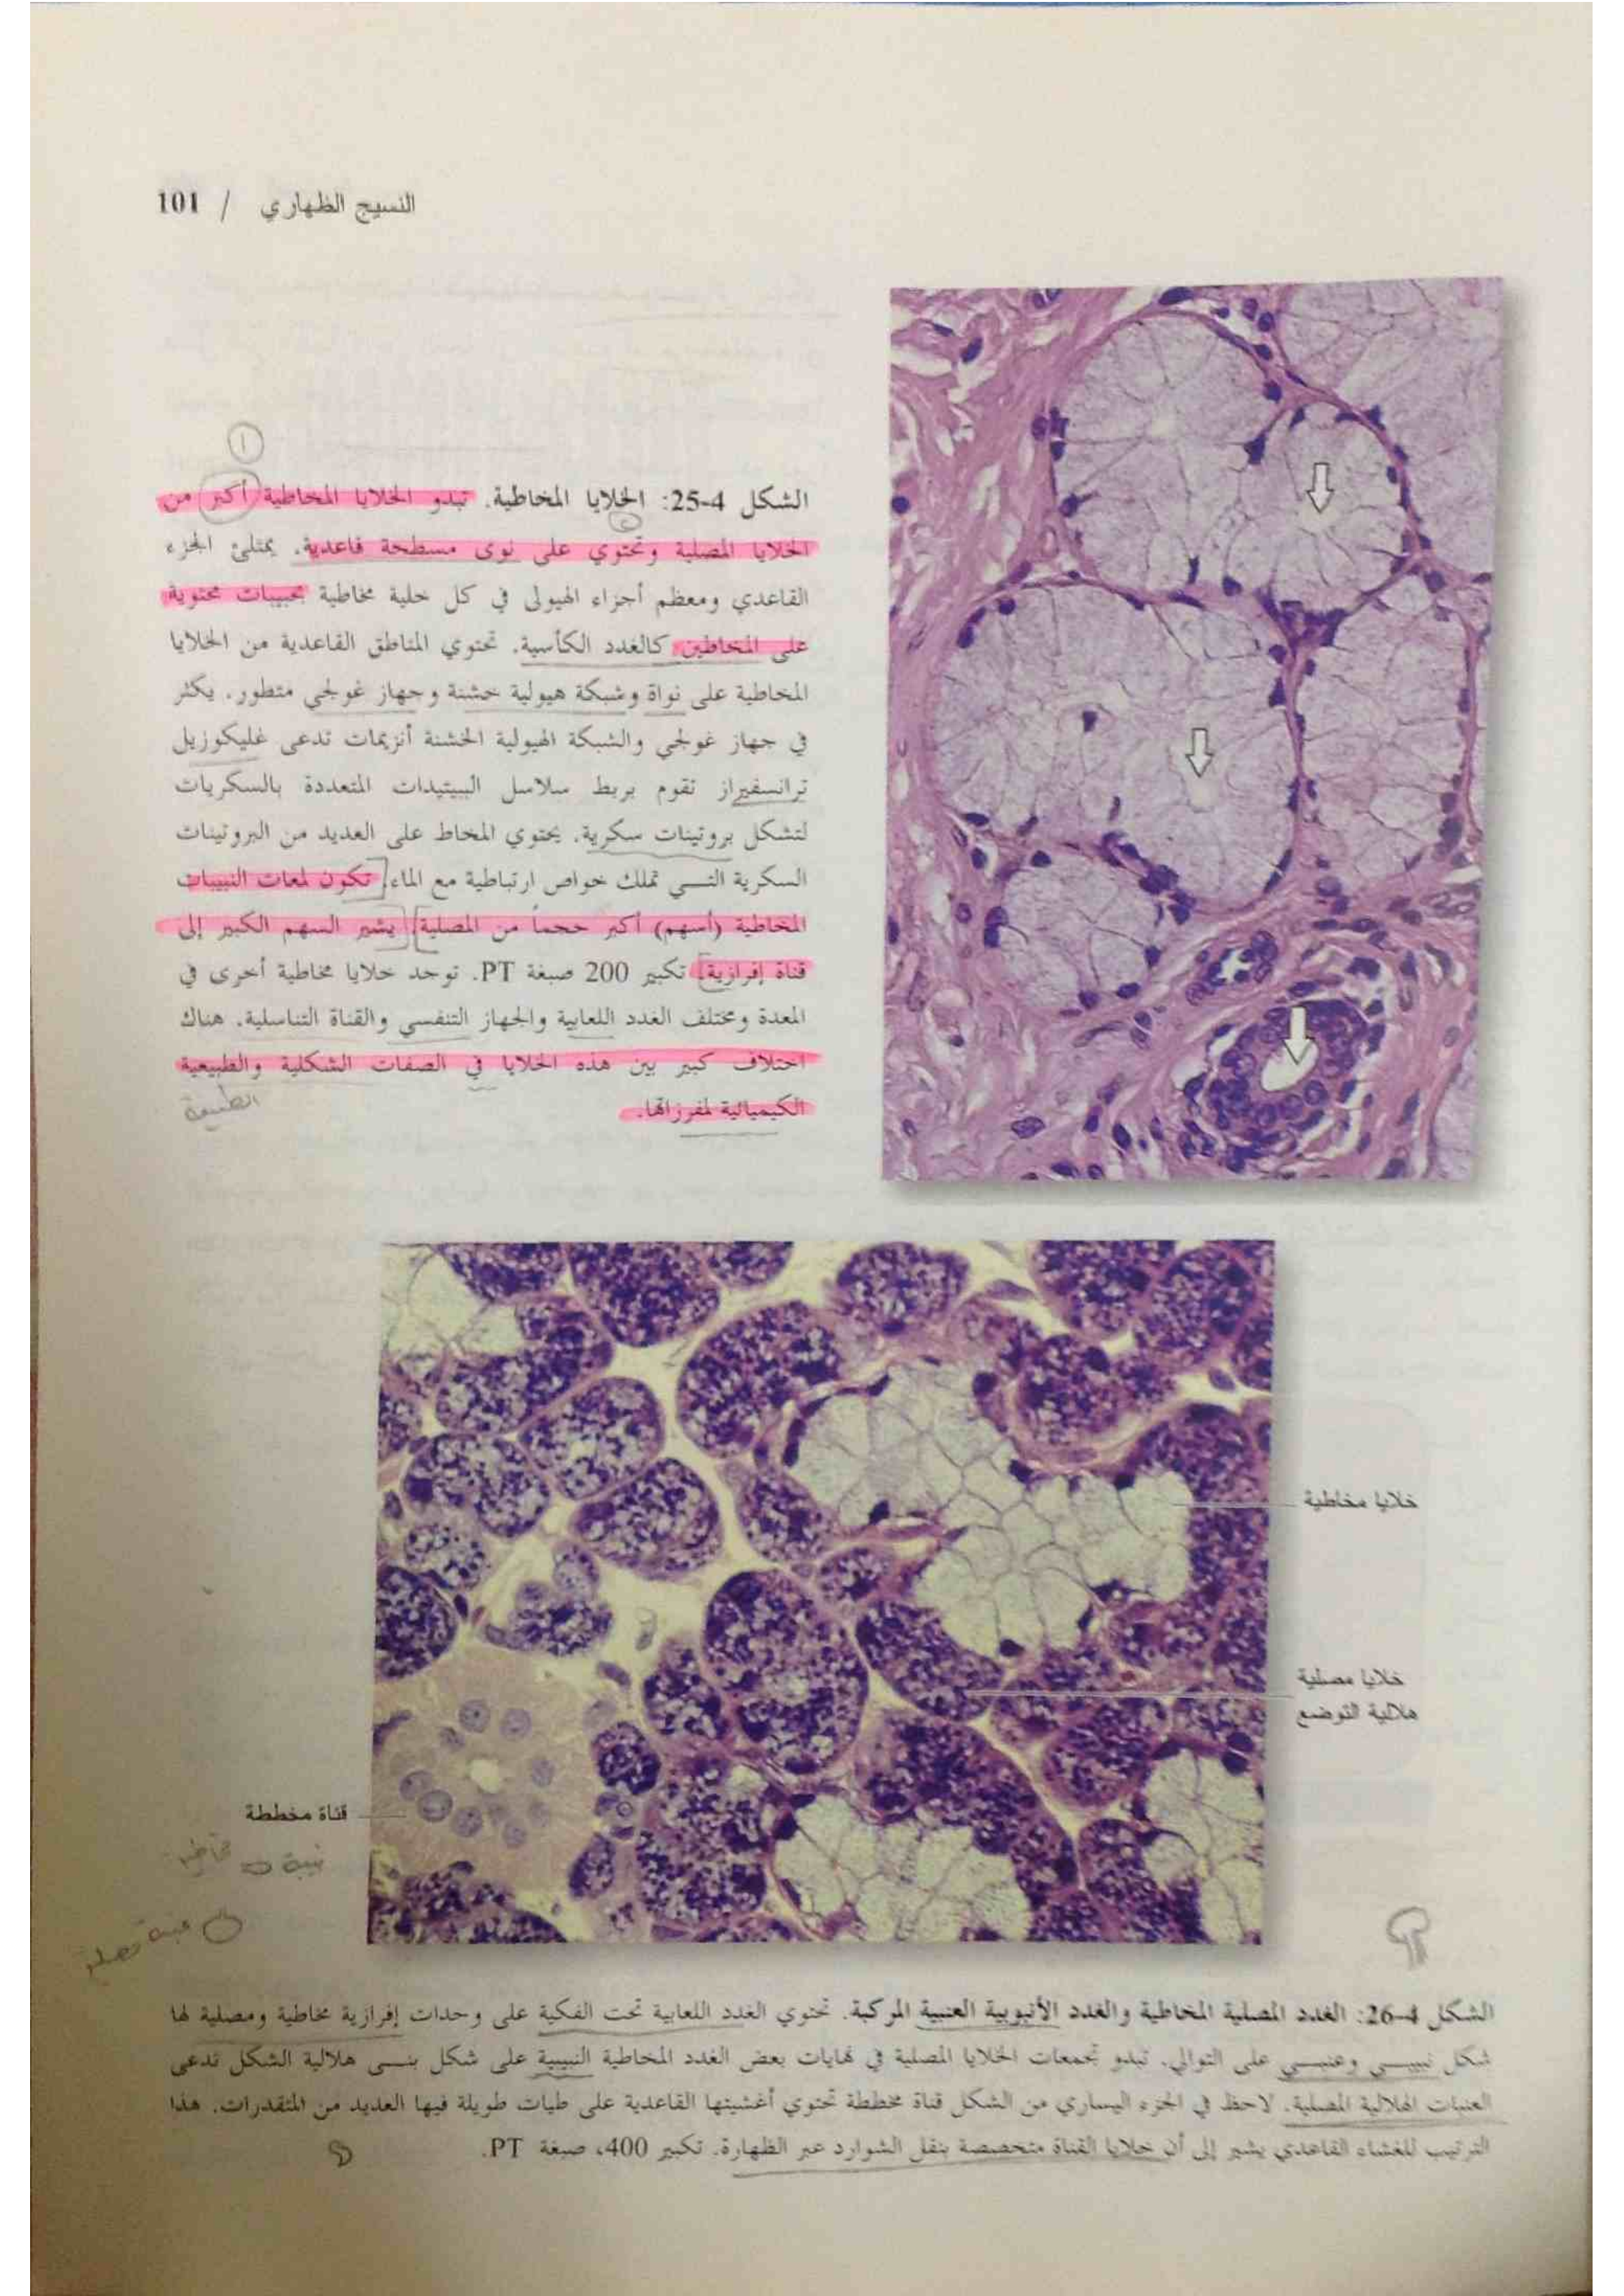 النسيج الظهاري / 101
①
الشكل 4-25: الخلايا المخاطية. تبدو الخلايا المخاطية أكبر من
الخلايا المصلية وتحتوي على نوى مسطحة قاعدية. يمتلئ الجزء
القاعدي ومعظم أجزاء الهيولى في كل خلية مخاطية بحبيبات محتوية
على المخاطين كالغدد الكأسية. تحتوي المناطق القاعدية من الخلايا
المخاطية على نواة وشبكة هيولية خشنة وجهاز غولجي متطور. يكثر
في جهاز غولجي والشبكة الهيولية الخشنة أنزيمات تدعى غليكوزيل
ترانسفيراز تقوم بربط سلاسل الببتيدات المتعددة بالسكريات
لتشكل بروتينات سكرية. يحتوي المخاط على العديد من البروتينات
السكرية التي تملك خواص ارتباطية مع الماء. تكون لمعات النبيبات
المخاطية (أسهم) أكبر حجماً من المصلية. يشير السهم الكبير إلى
قناة إفرازية. تكبير 200 صبغة PT. توجد خلايا مخاطية أخرى في
المعدة ومختلف الغدد اللعابية والجهاز التنفسي والقناة التناسلية. هناك
اختلاف كبير بين هذه الخلايا في الصفات الشكلية والطبيعية
الكيميائية لمفرزاتها.
الطبيعة
خلايا مخاطية
خلايا مصلية
هلالية التوضع
قناة مخططة
الشكل 4-26: الغدد المصلية المخاطية والغدد الأنبوبية العنبية المركبة. تحتوي الغدد اللعابية تحت الفكية على وحدات إفرازية مخاطية ومصلية لها
شكل نبيبي وعنبي على التوالي. تبدو تجمعات الخلايا المصلية في نهايات بعض الغدد المخاطية النبيبية على شكل بنى هلالية الشكل تدعى
العنبات الهلالية المصلية. لاحظ في الجزء اليساري من الشكل قناة مخططة تحتوي أغشيتها القاعدية على طيات طويلة فيها العديد من المتقدرات. هذا
الترتيب للغشاء القاعدي يشير إلى أن خلايا القناة متخصصة بنقل الشوارد عبر الظهارة. تكبير 400، صبغة PT.